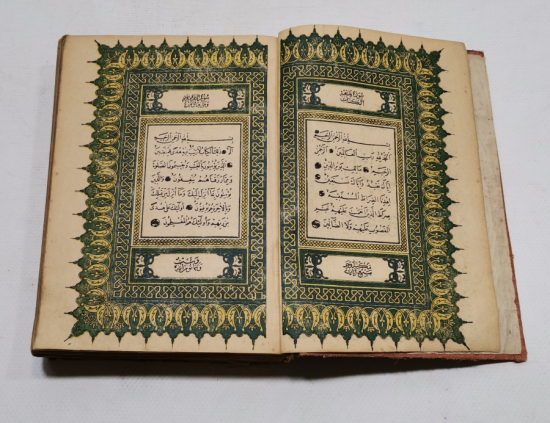 سورة فاتحة
الكتاب
بسم الله الرحمن الرحيم
الحمد لله رب العالمين الرحمن
الرحيم مالك يوم الدين
اياك نعبد واياك نستعين
اهدنا الصراط المستقيم
صراط الذين انعمت عليهم غير
المغضوب عليهم ولا الضالين
بسم الله الرحمن الرحيم
الم ذلك الكتاب لا ريب فيه هدى للمتقين
الذين يؤمنون بالغيب ويقيمون الصلوة
ومما رزقناهم ينفقون والذين
يؤمنون بما انزل اليك وما انزل من قبلك
وبالاخرة هم يوقنون اولئك على هدى
من ربهم واولئك هم المفلحون